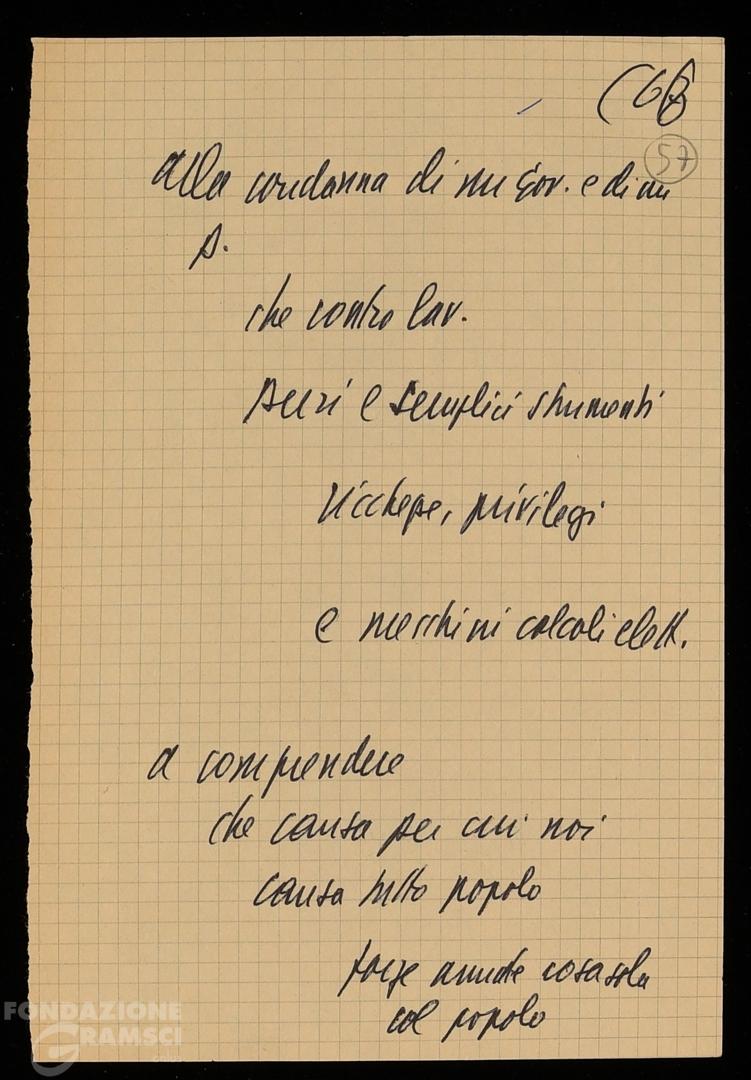 57
alla condanna di un Gov. e di un
p.
che contro lav.
puri e semplici strumenti
ricchezze, privilegi
e meschini calcoli elett.
a comprendere
che causa per cui noi
causa tutto popolo
forze armate cosa sola
col popolo
FONDAZIONE
GRAMSCI